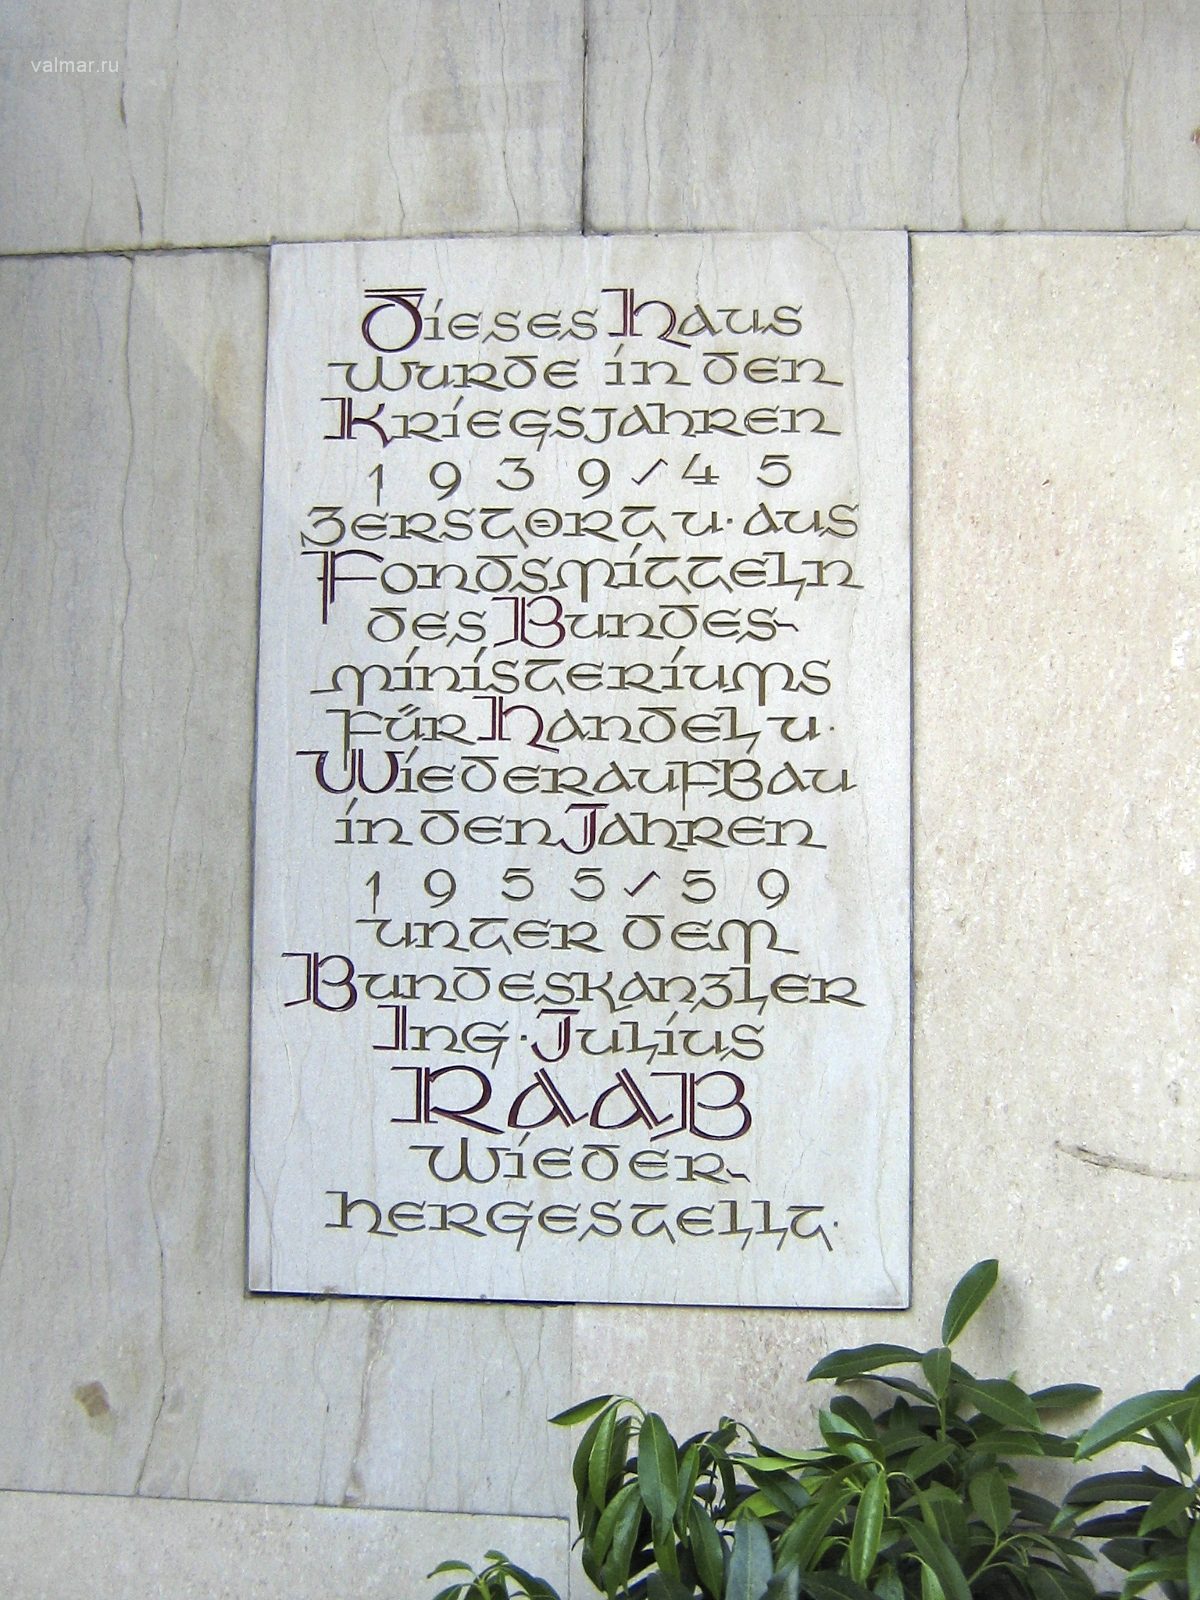 valmar.ru
Dieses Haus
wurde in den
Kriegsjahren
1939/45
zerstört u. aus
Fondsmitteln
des Bundes-
ministeriums
für Handel u.
Wiederaufbau
in den Jahren
1955/59
unter dem
Bundeskanzler
Ing. Julius
RAAB
wieder-
hergestellt.